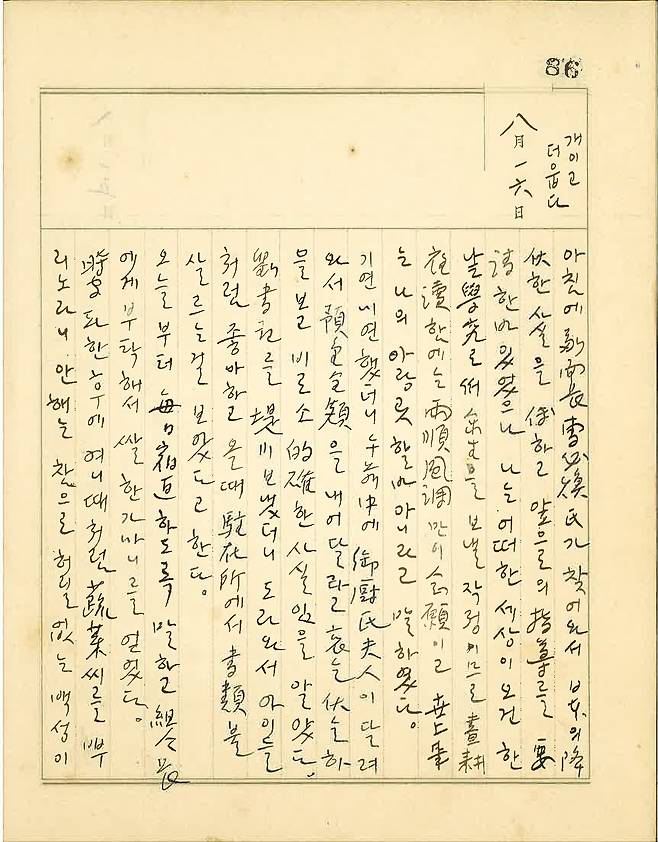 86
개이고
더웁다
八月一六日
아침에 副面長 曺必煥氏가 찾어와서 日本의 降
伏한 사실을 傳하고 앞으로의 指導를 要
請한바 있었으나 나는 어떠한 세상이 오건 한
낱 學究로써 余生을 보낼 작정이므로 晝耕
夜讀한에는 雨順風調만이 念願이고 世上事
는 나의 아랑곳 할바 아니라고 말하였다.
기연 미연했더니 午前中에 御厨氏夫人이 달려
와서 預金 全額을 내어달라고 哀乞伏乞하
믈 보고 비로소 的確한 사실임을 알았다.
劉書記를 堤川 보냈더니 도라와서 아이들
처럼 좋아하고 올때 駐在所에서 書類 불
살르는걸 보았다고 한다.
오늘부터 每日 宿直하도록 말하고 組合長
에게 부탁해서 쌀 한가마니를 얻었다.
罷한 후에 여니때처럼 蔬菜씨를 뿌
리노라니 안해는 참으로 허릴없는 백성이